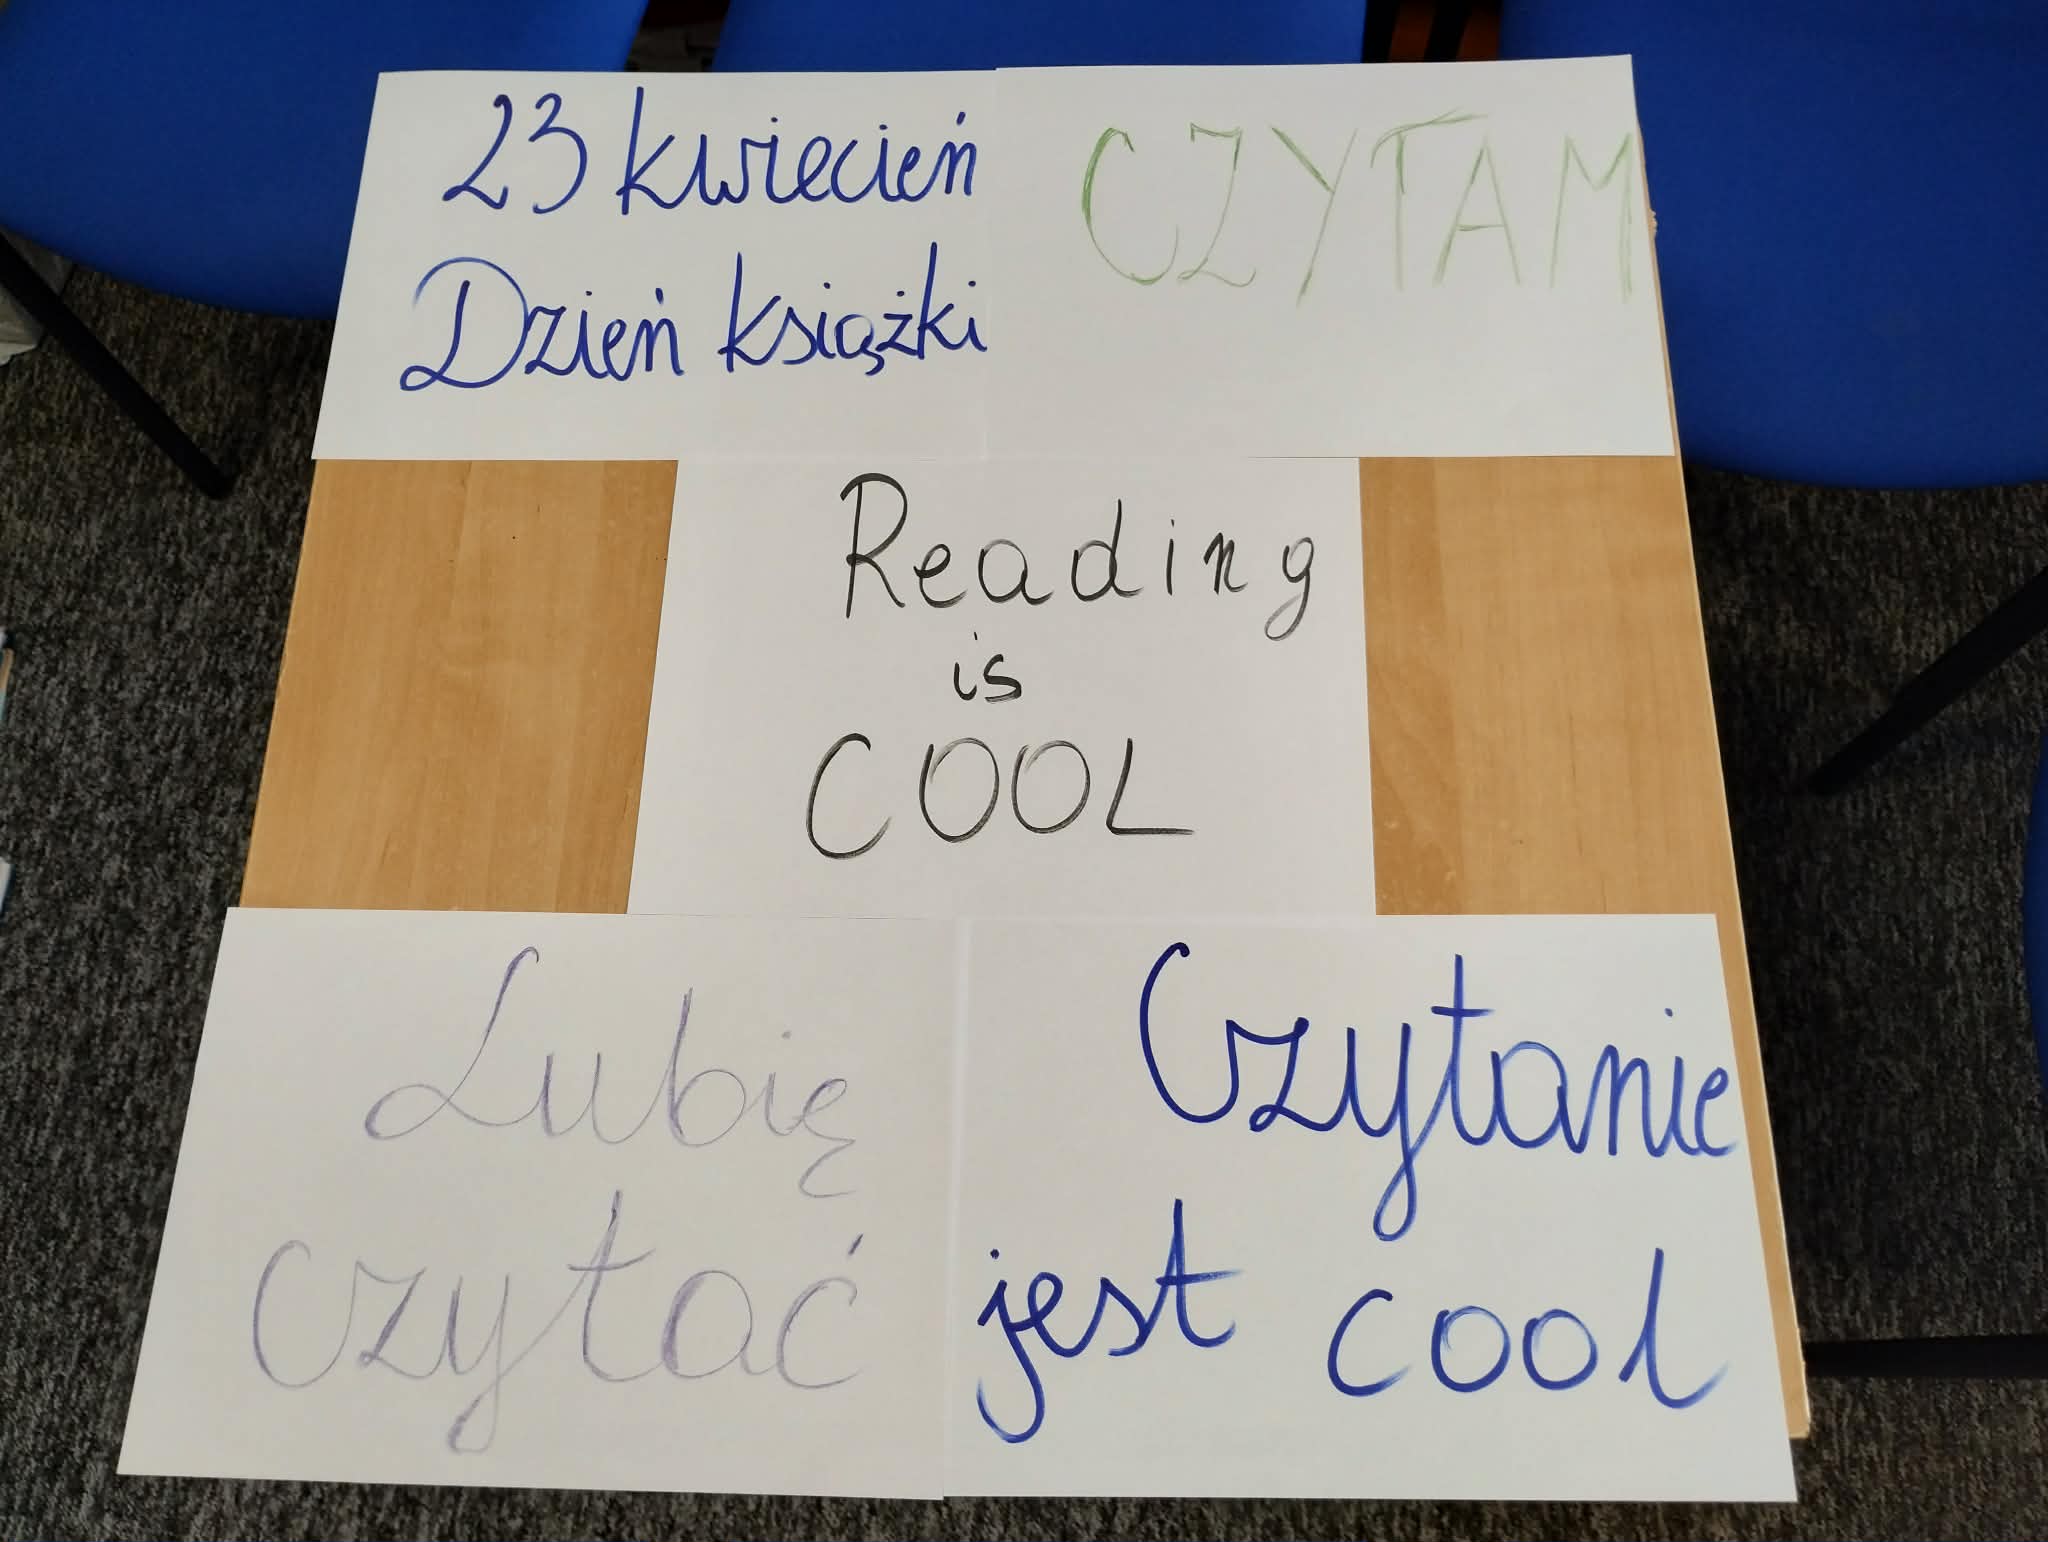 23 kwiecień
Dzień książki
CZYTAM
Reading
is
COOL
Lubię
czytać
Czytanie
jest cool